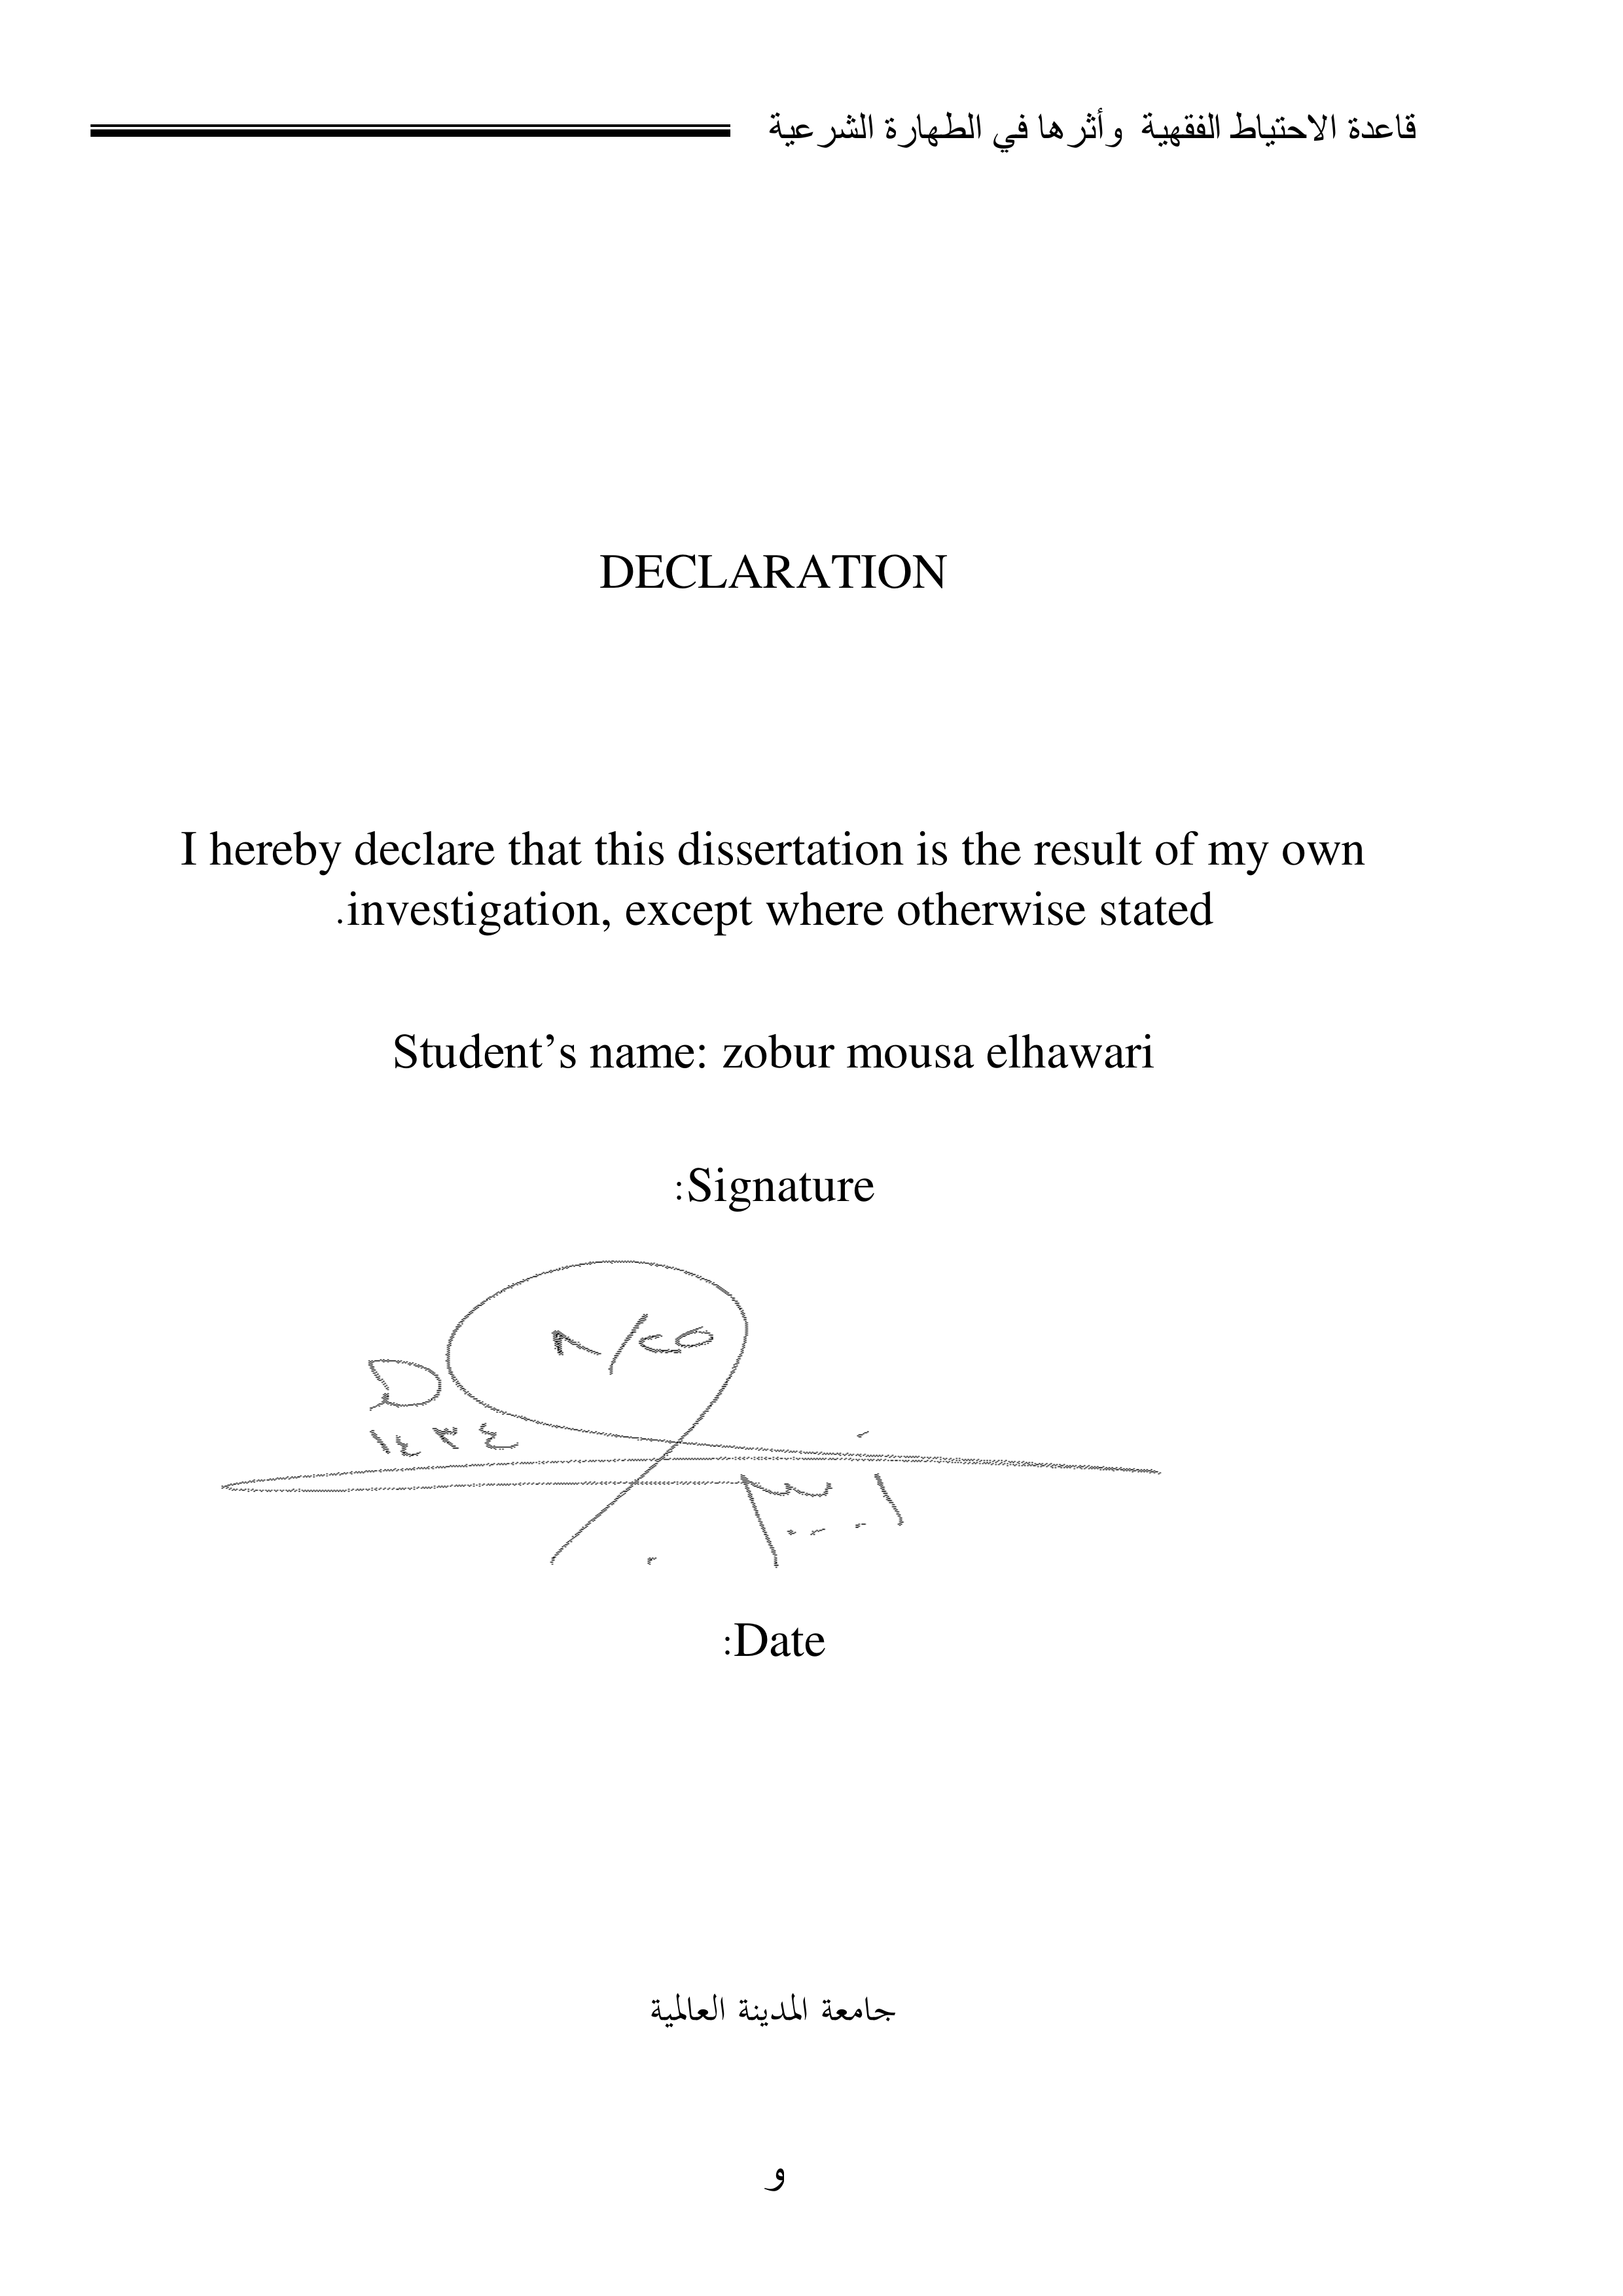 قاعدة الاحتياط الفقهية وأثرها في الطهارة الشرعية
DECLARATION
I hereby declare that this dissertation is the result of my own
.investigation, except where otherwise stated
Student’s name: zobur mousa elhawari
:Signature
١٤٣٤
:Date
جامعة المدينة العالمية
و